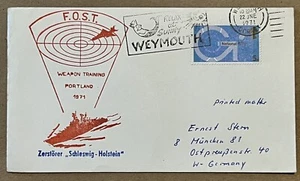 F.O.S.T.
WEAPON TRAINING
PORTLAND
1971
Zerstörer „Schleswig-Holstein"
Sunny
WEYMOUTH
22 JNE
1971
Printed matter
Ernest Stern
8 München 81
Ostpreußenstr. 40
W-Germany